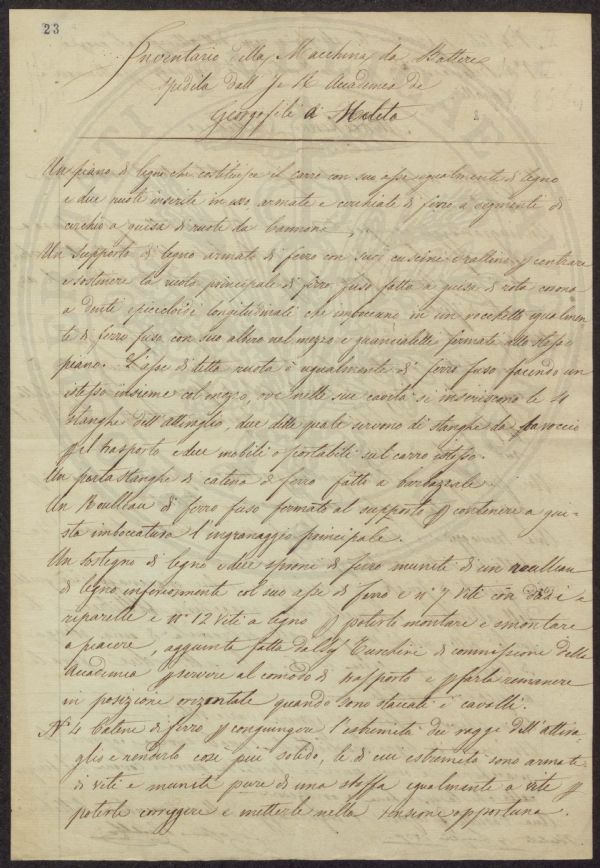 23
Inventario della Macchina da Battere
spedita dall' I e R Accademia de
Georgofili a Meleto
Un piano di legno che costituisce il carro con suo asse egualmente di legno
e due ruote inserite in esso armate e cerchiate di ferro a segmenti di
cerchio a guisa di ruote da Cannoni
Un supporto di legno armato di ferro con suoi cuscini d'ottone p centrare
e sostenere la ruota principale di ferro fuso fatta a guisa di rota corona
a denti epicicloidi longitudinali che imboccano in un rocchetto egualmen
te di ferro fuso con suo albero nel mezzo e guancialetti fermate allo stesso
piano. L'asse di detta ruota è ugualmente di ferro fuso facendo un
istesso insieme col mozzo, ove nelle sue cavità si inseriscono le 4
stanghe dell' attiraglio, due delle quali servono di stanghe da baroccio
p il trasporto e due mobili e portabili sul carro istesso.
Un porta stanghe di catena di ferro fatto a barbazzale.
Un Roulleau di ferro fuso fermato al supporto p contenere a giu-
sta imboccatura l'ingranaggio principale.
Un sostegno di legno e due sproni di ferro munite di un roulleau
di legno inferiormente col suo asse di ferro e n° 7 viti con dadi e
riparelle e n° 12 viti a legno p poterlo montare e smontare
a piacere, aggiunta fatta dal Turchini di commissione della
Accademia p servire al comodo di trasporto e p farla rimanere
in posizione orizontale quando sono staccati i cavalli.
N° 4 Catene di ferro p congiungere l'estremità dei raggi dell' attira
glio e renderlo così più solido, le di cui estremità sono armate
di viti e munite pure di una staffa egualmente a vite p
poterle correggere e metterle nella tensione opportuna.